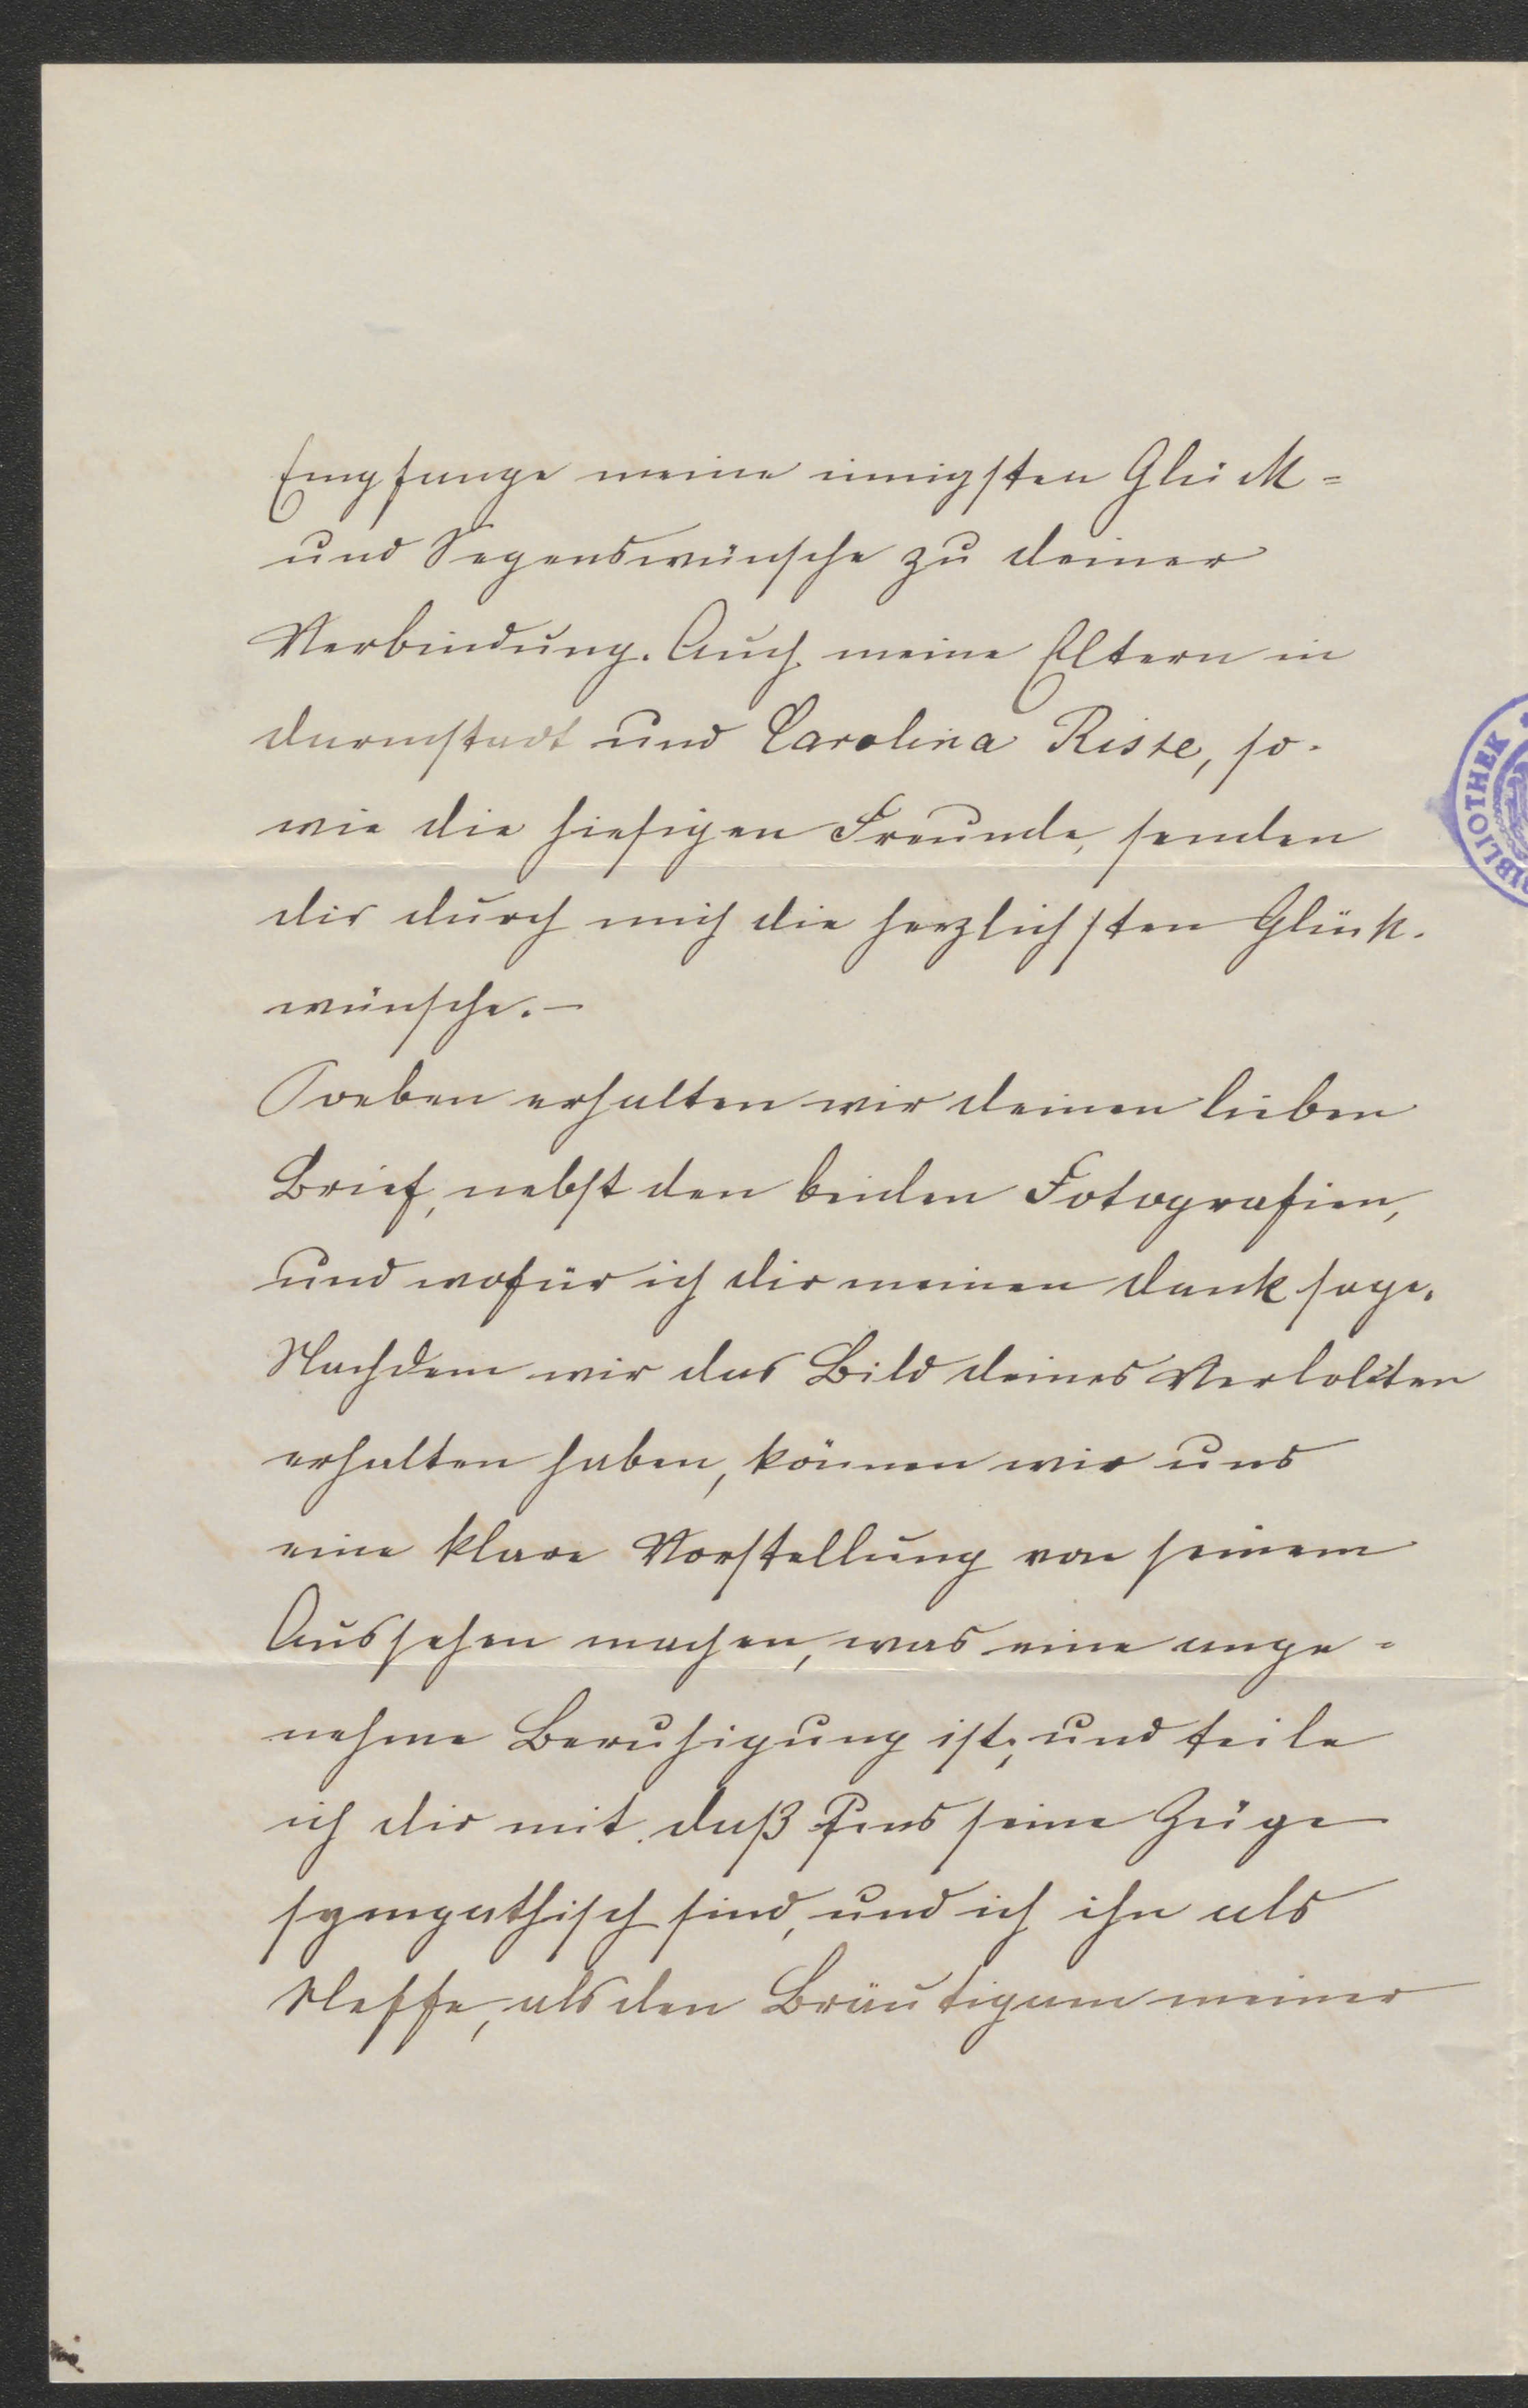 Empfange meine innigsten Glück=
und Segenswünsche zu deiner
Verbindung. Auch meine Eltern in
darmstadt und Carolina Risse, so-
wie die hiesigen Freunde, senden
dir durch mich die herzlichsten Glück-
wünsche. —
Soeben erhalten wir deinen lieben
Brief, nebst den beiden Fotografien,
und wofür ich dir meinen dank sage.
Nachdem wir das Bild deines Verlobten
erhalten haben, können wir uns
eine klare Vorstellung von seinem
Aussehen machen, was eine ange-
nehme Beruhigung ist; und teile
ich dir mit, daß seine Züge
sympathisch sind, und ich ihn als
Neffe, als den Bräutigam meiner
BIBLIOTHEK